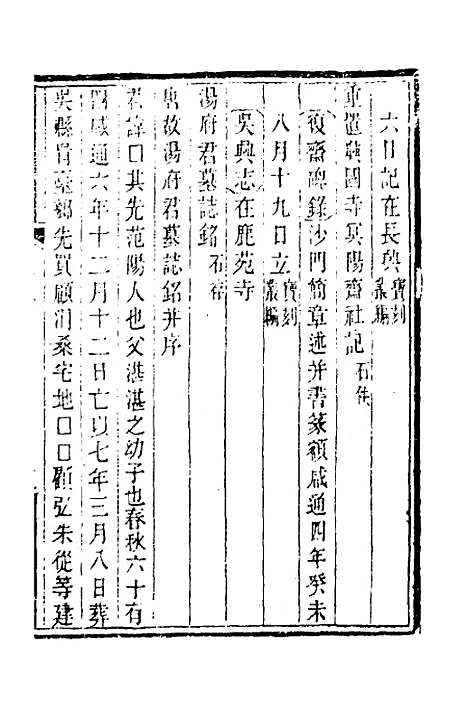 六日記在長興寶刻叢編
重置興國寺冥陽齋社記石佚
復齋碑錄沙門簡章述并書篆額咸通四年癸未
八月十九日立寶刻叢編
吳興志在鹿苑寺
湯府君墓誌銘石存
唐故湯府君墓誌銘并序
君諱□其先范陽人也父湛湛之幼子也春秋六十有
咸通六年十二月十二日亡以七年三月八日葬
吳縣胥臺鄉先買顧澗桑宅地□□顧弘朱從等建